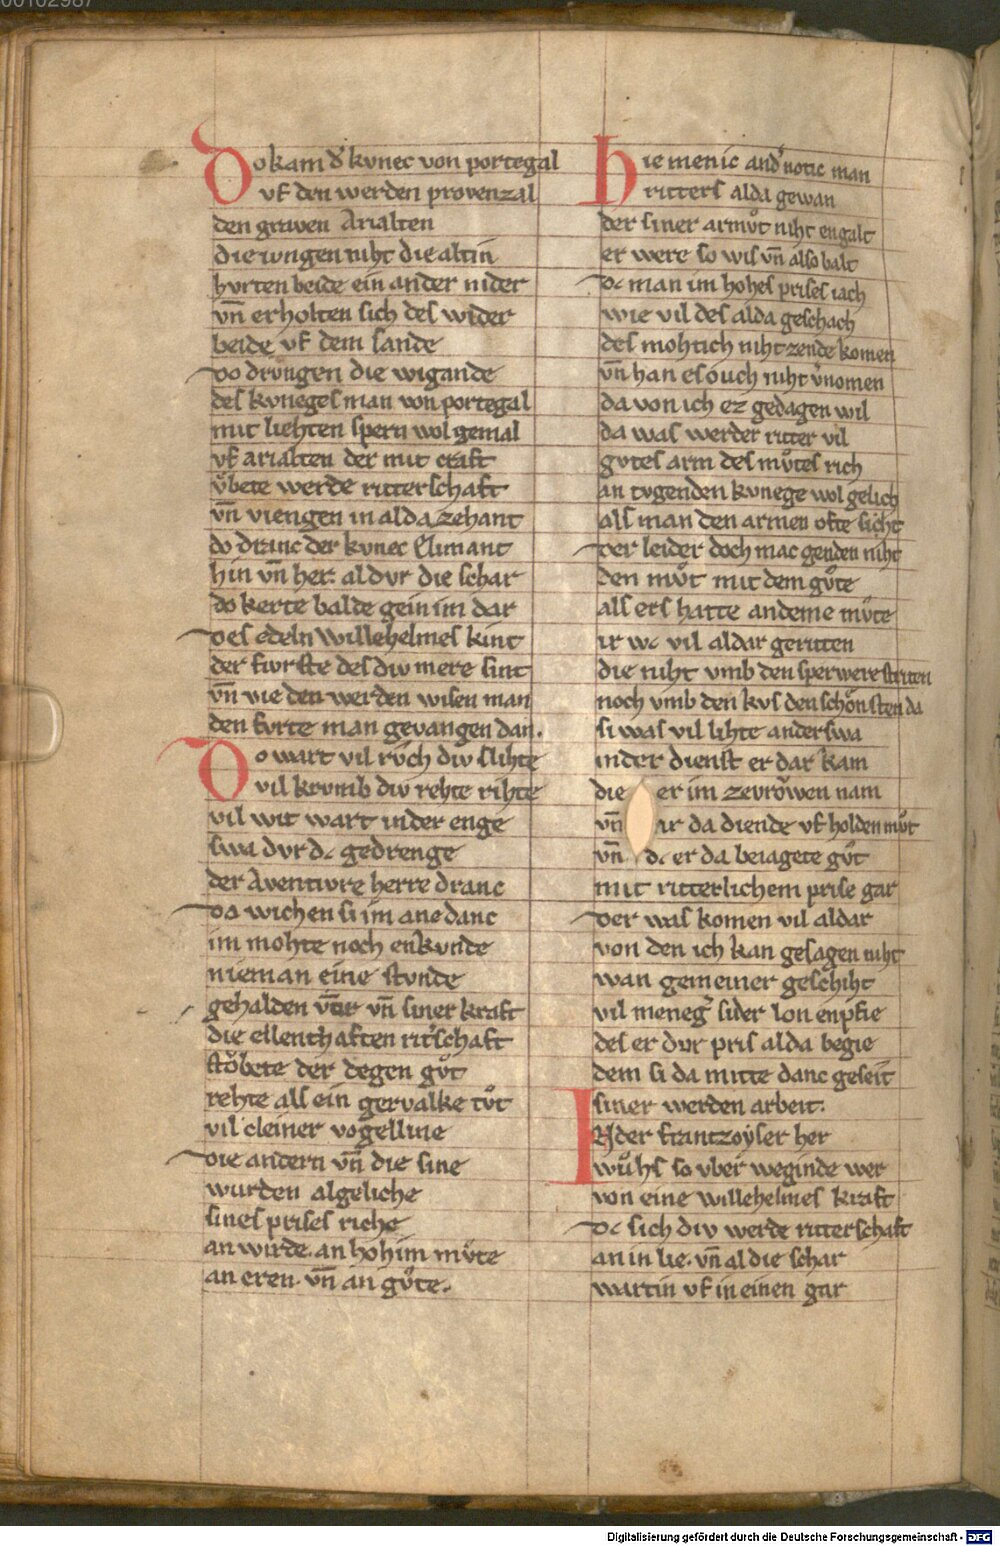 00102987
Do kam d᷑ kvnec von portegal
vf den werden provenzal
den graven Arialten
die ivngen niht die altin
hvrten beide ein ander nider
vn̄ erholten sich des wider
beide vf dem sande
Do drungen die wigande
des kvneges man von portegal
mit liehten spern wol gemal
vf arialten der mit craft
vͦbete werde ritterschaft
vn̄ viengen in alda zehant
do dranc der kvnec Elimant
hin vn̄ her. al dvr die schar
do kerte balde gein im dar
Des edeln Willehelmes kint
der fivrste des div mere sint
vn̄ vie den werden wisen man
den fvrte man gevangen dan.
Do wart vil rvͦch div slihte
vil krvmb div rehte rihte
vil wit wart in der enge
swa dvr dc gedrenge
der Aventivre herre dranc
Da wichen si im ane danc
im mohte noch enkvnde
nieman eine stvnde
gehalden vor vn̄ siner kraft
die ellenthaften rit᷑schaft
stoͮbete der degen gvͦt
rehte als ein gervalke tvͦt
vil cleiner vogelline
Die andern vn̄ die sine
wurden algeliche
sines prises riche
an wirde. an hohim mvͦte
an eren. vn̄ an gvͦte.
Hie menic and᷑ notic man
ritters alda gewan
der siner armvͦt niht engalt
er were so wis vn̄ also balt
Dc man im hohes prises iach
wie vil des alda geschach
des moht ich niht zende komen
vn̄ han es oͮch niht v᷑nomen
da von ich ez gedagen wil
da was werder ritter vil
gvtes arm des mvͦtes rich
an tvgenden kvnege wol gelich
als man den armen ofte siht
Der leider doch mac genden niht
den mvͦt mit dem gvͦte
als ers hatte an deme mvͦte
ir wc vil aldar geritten
die niht vmb den sperwere striten
noch vmb den kvs den schônsten da
si was vil lihte anderswa
in der dienst er dar kam
die er im zevroͮwen nam
vn̄ ir da diende vf holden mvͦt
vn̄ dc er da beiagete gvͦt
mit ritterlichem prise gar
Der was komen vil aldar
von den ich kan gesagen niht
wan gemeiner geschiht
vil meneg᷑ sider lon enpfie
des er dvr pris alda begie
dem si da mitte danc geseit
siner werden arbeit.
IN der frantzoyser her
wuͦhs so vber weginde wer
von eine willehelmes kraft
Dc sich div werde ritterschaft
an in lie. vn̄ al die schar
wart in vf in einen gar
Digitalisierung gefördert durch die Deutsche Forschungsgemeinschaft - DFG